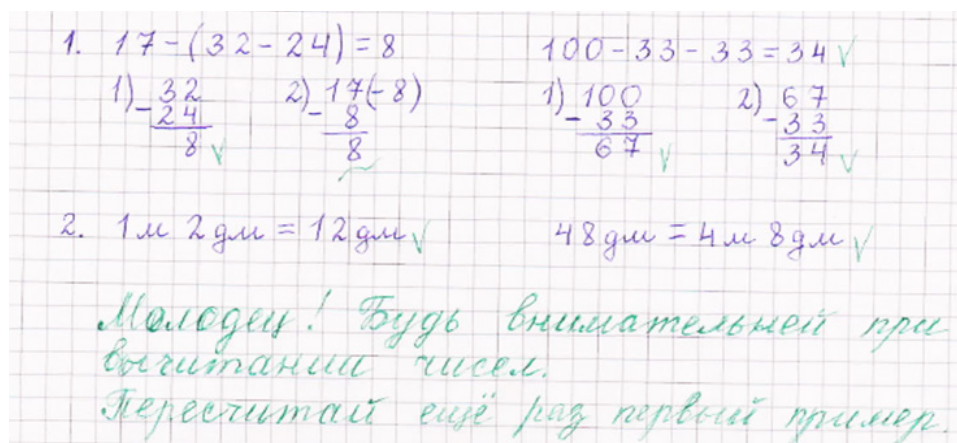 1. 17-(32-24)=8 100-33-33=34 √
1) 32 2) 17(-8) 1) 100 2) 67
- 24 - 8 - 33 - 33
8 √ 8 67 √ 34 √
2. 1м 2дм = 12дм √ 48дм = 4м 8дм √
Молодец! Будь внимательней при
вычитании чисел.
Пересчитай ещё раз первый пример.